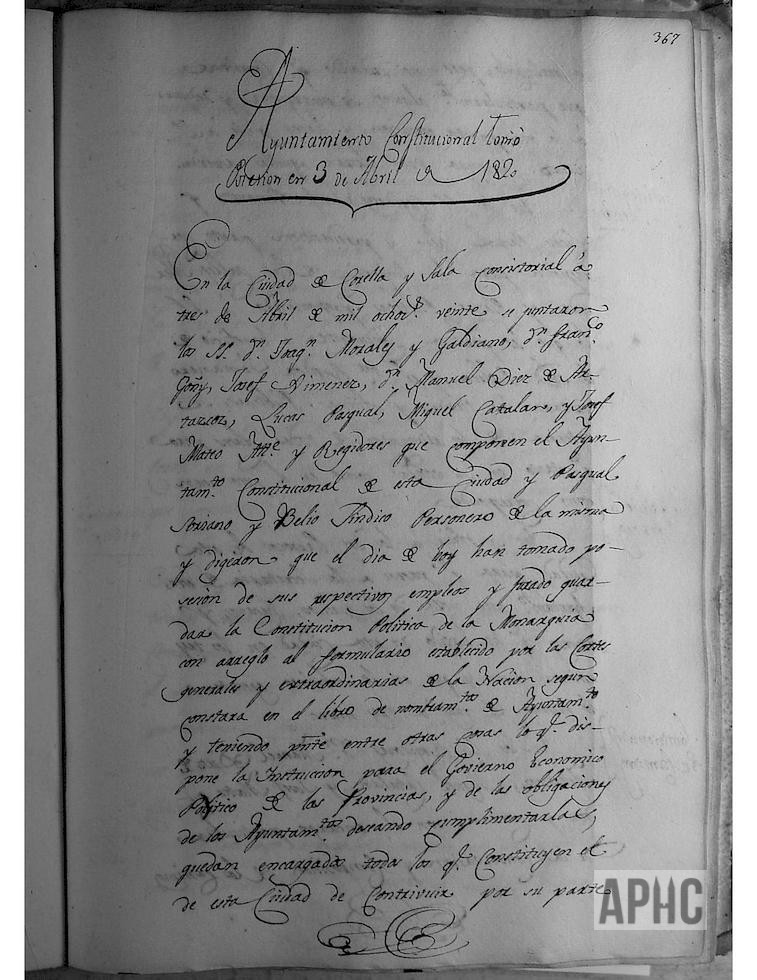 367
Ayuntamiento Constitucional tomó
Posesion en 3 de Abril de 1820
En la Ciudad de Corella y Sala Consistorial á
tres de Abril de mil ochoz.s veinte se juntaron
los SS. d.n Joaq.n Morales y Galdiano, d.n Fran.co
Goñy, Josef Ximenez, d.n Manuel Diez de Ar-
tazcoz, Lucas Pasqual, Miguel Catalan, y Josef
Mateo Att.e y Regidores que componen el Ayun-
tam.to Constitucional de esta Ciudad y Pasqual
Soriano y Belio Sindico Personero de la misma
y digeron que el dia de hoy han tomado po-
sesion de sus respectivos empleos y jurado guar-
dar la Constitucion Politica de la Monarquia
con arreglo al formulario establecido por las Cortes
generales y extraordinarias de la Nacion segun
constara en el libro de nombram.tos de Ayuntam.to
y teniendo pnte entre otras cosas lo q.e dis-
pone la Instruccion para el Govierno Economico
Politico de las Provincias, y de las obligaciones
de los Ayuntam.tos deseando cumplimentarla,
quedan encargados todos los q.e Constituyen el
de esta Ciudad de Contrivuir por su parte
APHC